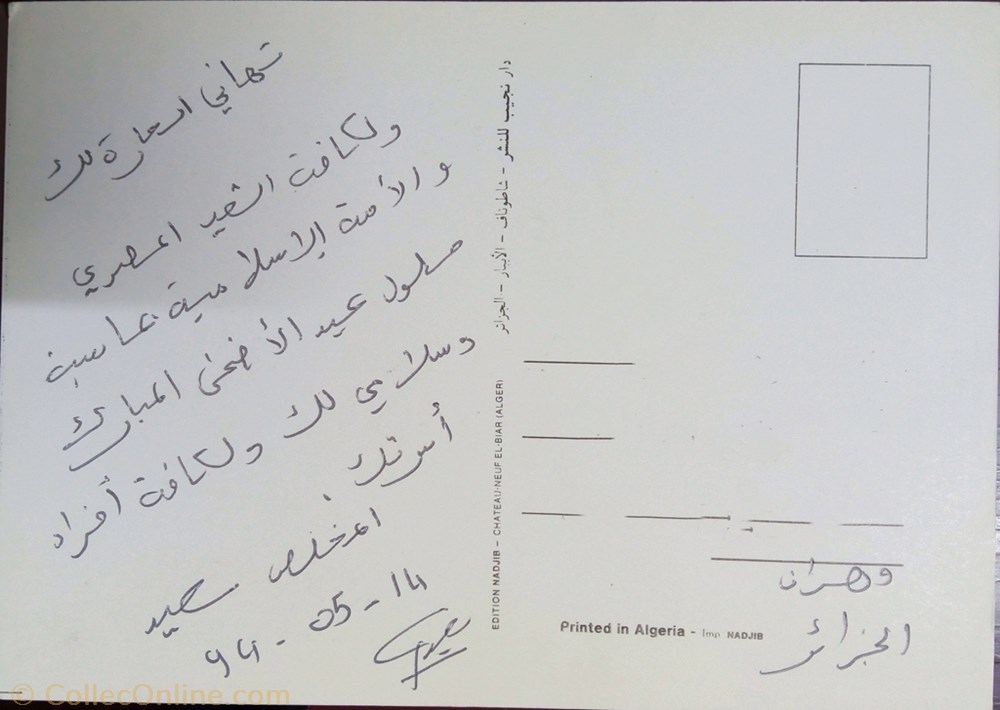 تهاني الحارة لك
ولكافة الشعب المصري
والأمة الإسلامية بمناسبة
حلول عيد الأضحى المبارك
وسلامي لك ولكافة أفراد
أسرتك
المخلص سعيد
94-05-14
دار نجيب للنشر - شاطوناف - الأبيار - الجزائر
EDITION NADJIB - CHATEAU-NEUF EL-BIAR (ALGER)
وهران
الجزائر
Printed in Algeria - Imp NADJIB
© CollecOnline.com